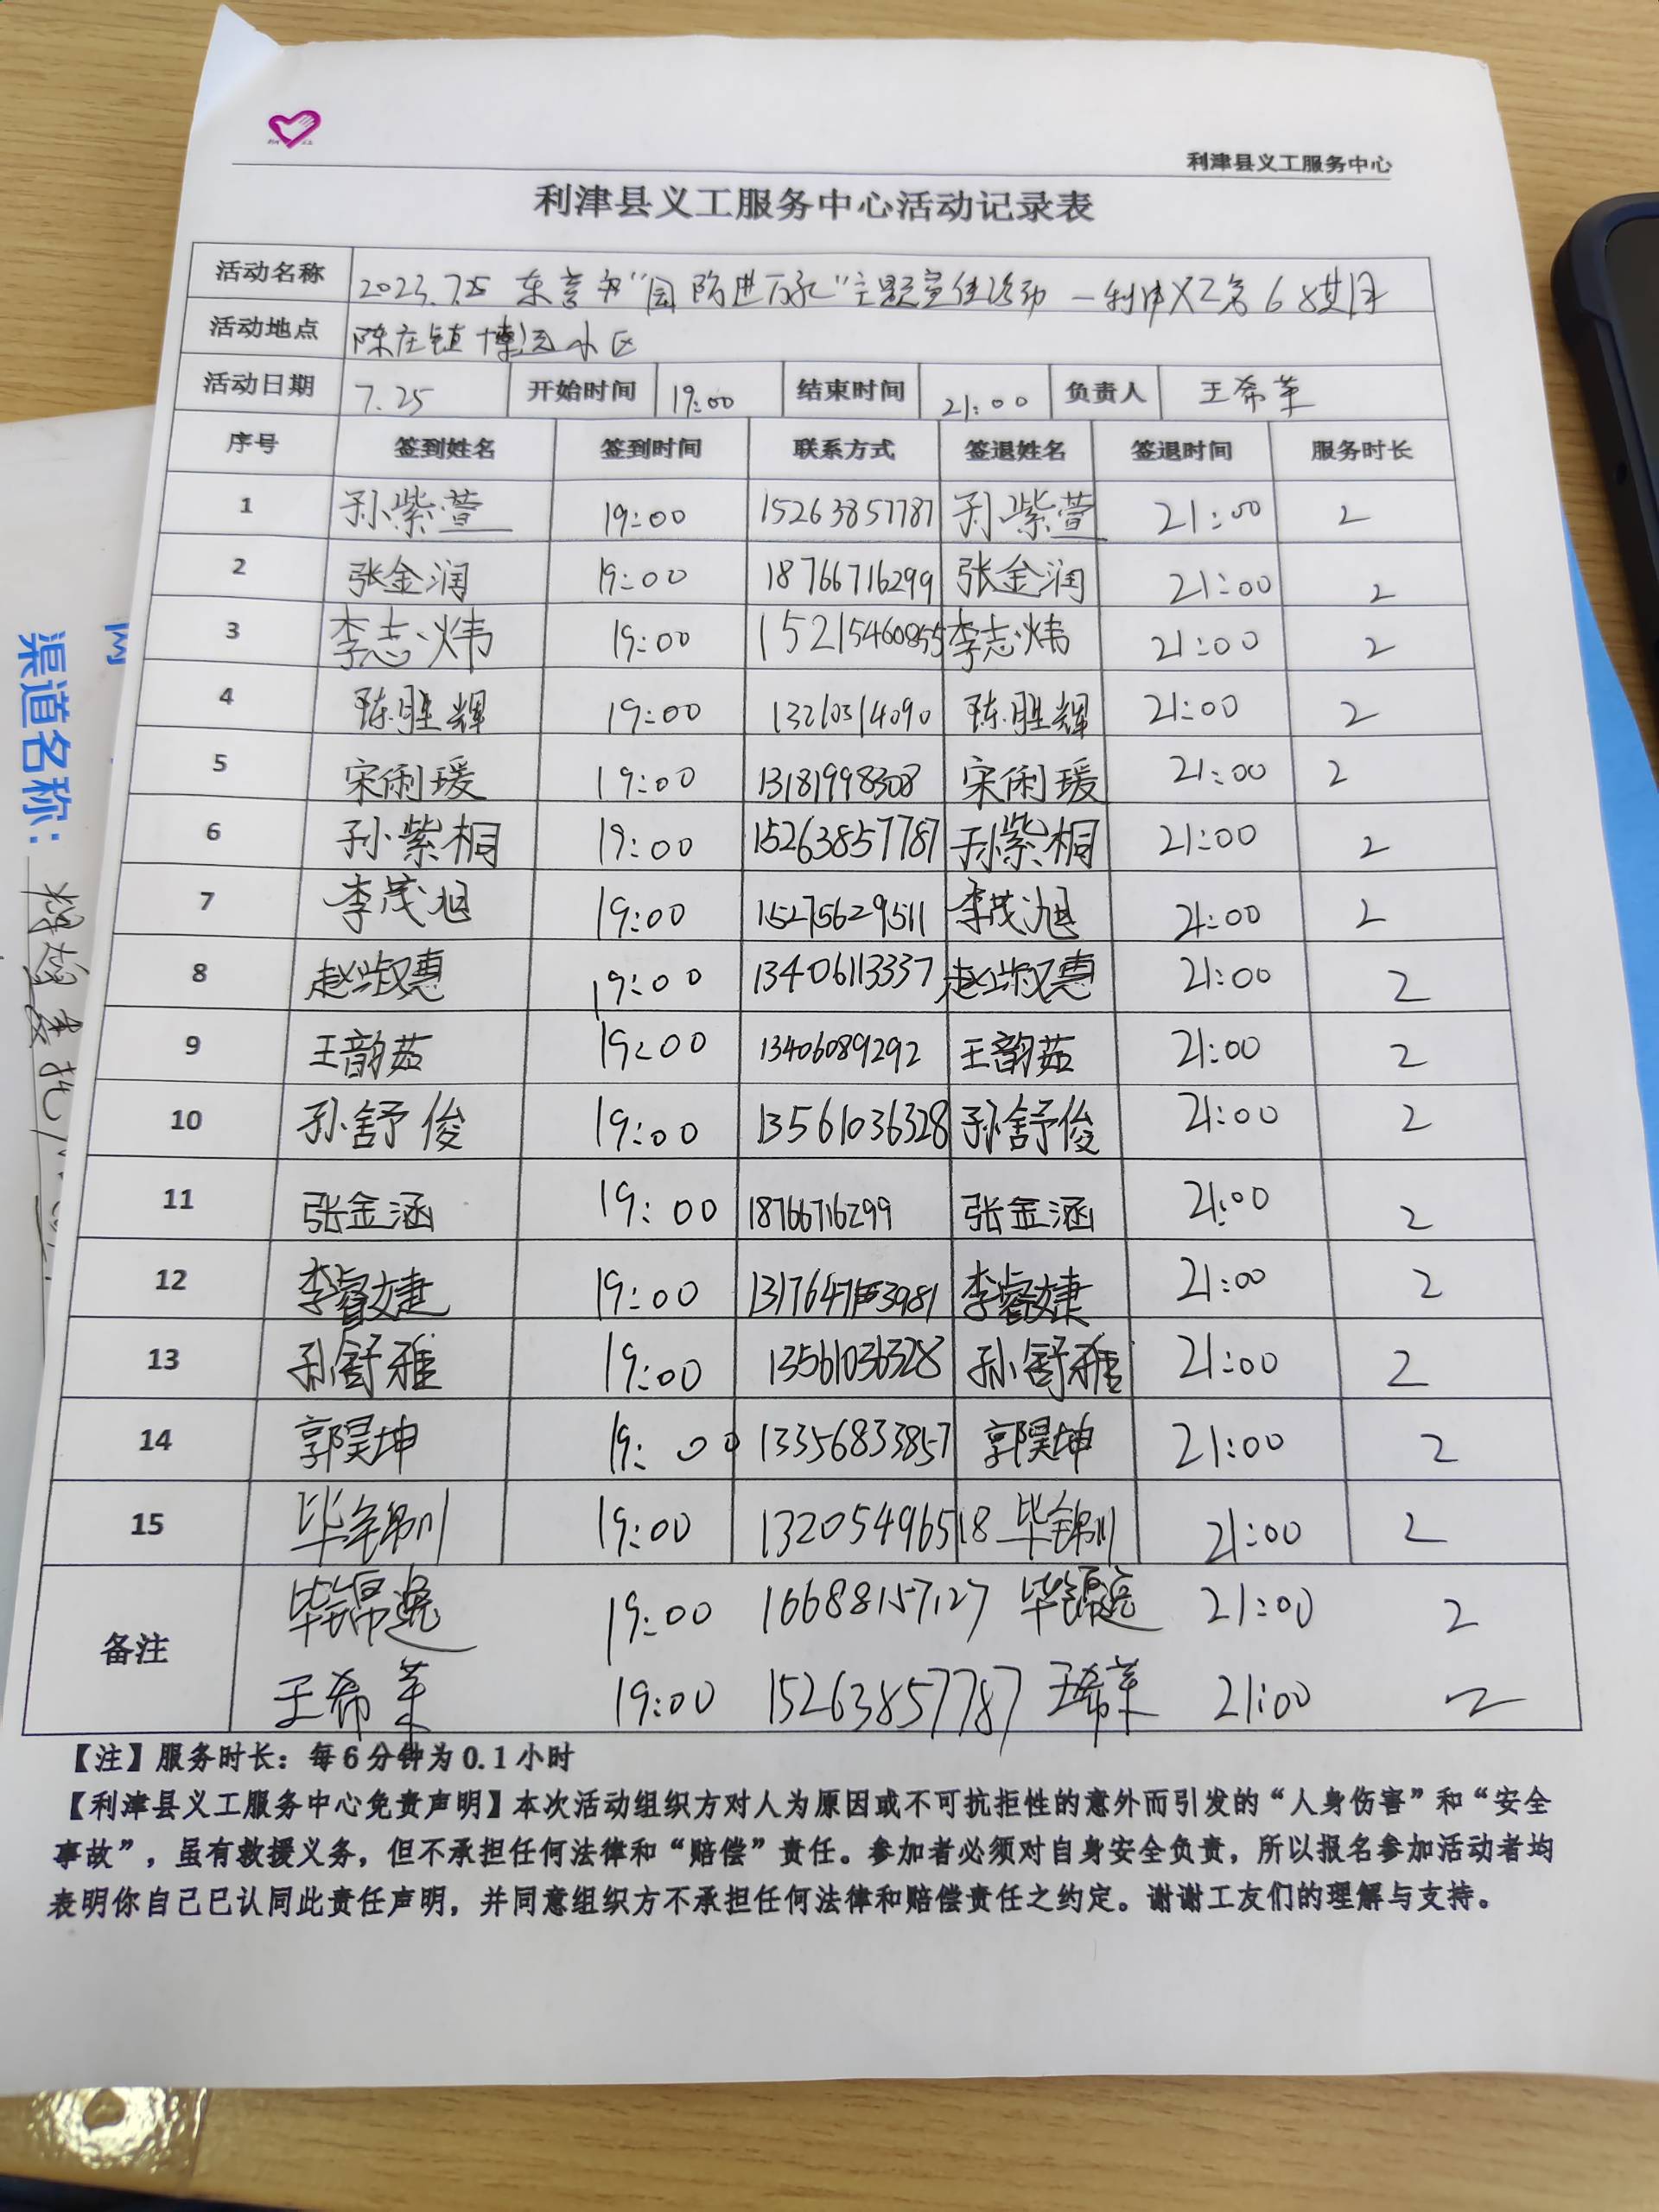 利津县义工服务中心
利津县义工服务中心活动记录表
活动名称 2023.7.25 东营市“国防进万家”主题宣传活动 — 利津义工第68期
活动地点 陈庄镇博远小区
活动日期 7.25 开始时间 19:00 结束时间 21:00 负责人 王希苹
序号 签到姓名 签到时间 联系方式 签退姓名 签退时间 服务时长
1 孙紫萱 19:00 15263857787 孙紫萱 21:00 2
2 张金润 19:00 18766716299 张金润 21:00 2
3 李志炜 19:00 15215460855 李志炜 21:00 2
4 陈胜辉 19:00 13210314090 陈胜辉 21:00 2
5 宋俐瑗 19:00 13181998308 宋俐瑗 21:00 2
6 孙紫桐 19:00 15263857787 孙紫桐 21:00 2
7 李茂旭 19:00 15275629511 李茂旭 21:00 2
8 赵淑惠 19:00 13406113337 赵淑惠 21:00 2
9 王韵茹 19:00 13406089292 王韵茹 21:00 2
10 孙舒俊 19:00 13561036328 孙舒俊 21:00 2
11 张金涵 19:00 18766716299 张金涵 21:00 2
12 李睿婕 19:00 李睿婕 21:00 2
13 孙舒雅 19:00 13561036328 孙舒雅 21:00 2
14 郭昊坤 19:00 13356833857 郭昊坤 21:00 2
15 毕锦川 19:00 13205496518 毕锦川 21:00 2
备注 毕锦逸 19:00 16688157127 毕锦逸 21:00 2
王希苹 19:00 15263857787 王希苹 21:00 2
【注】服务时长：每6分钟为0.1小时
【利津县义工服务中心免责声明】本次活动组织方对人为原因或不可抗拒性的意外而引发的“人身伤害”和“安全
事故”，虽有救援义务，但不承担任何法律和“赔偿”责任。参加者必须对自身安全负责，所以报名参加活动者均
表明你自己已认同此责任声明，并同意组织方不承担任何法律和赔偿责任之约定。谢谢工友们的理解与支持。
渠道名称：